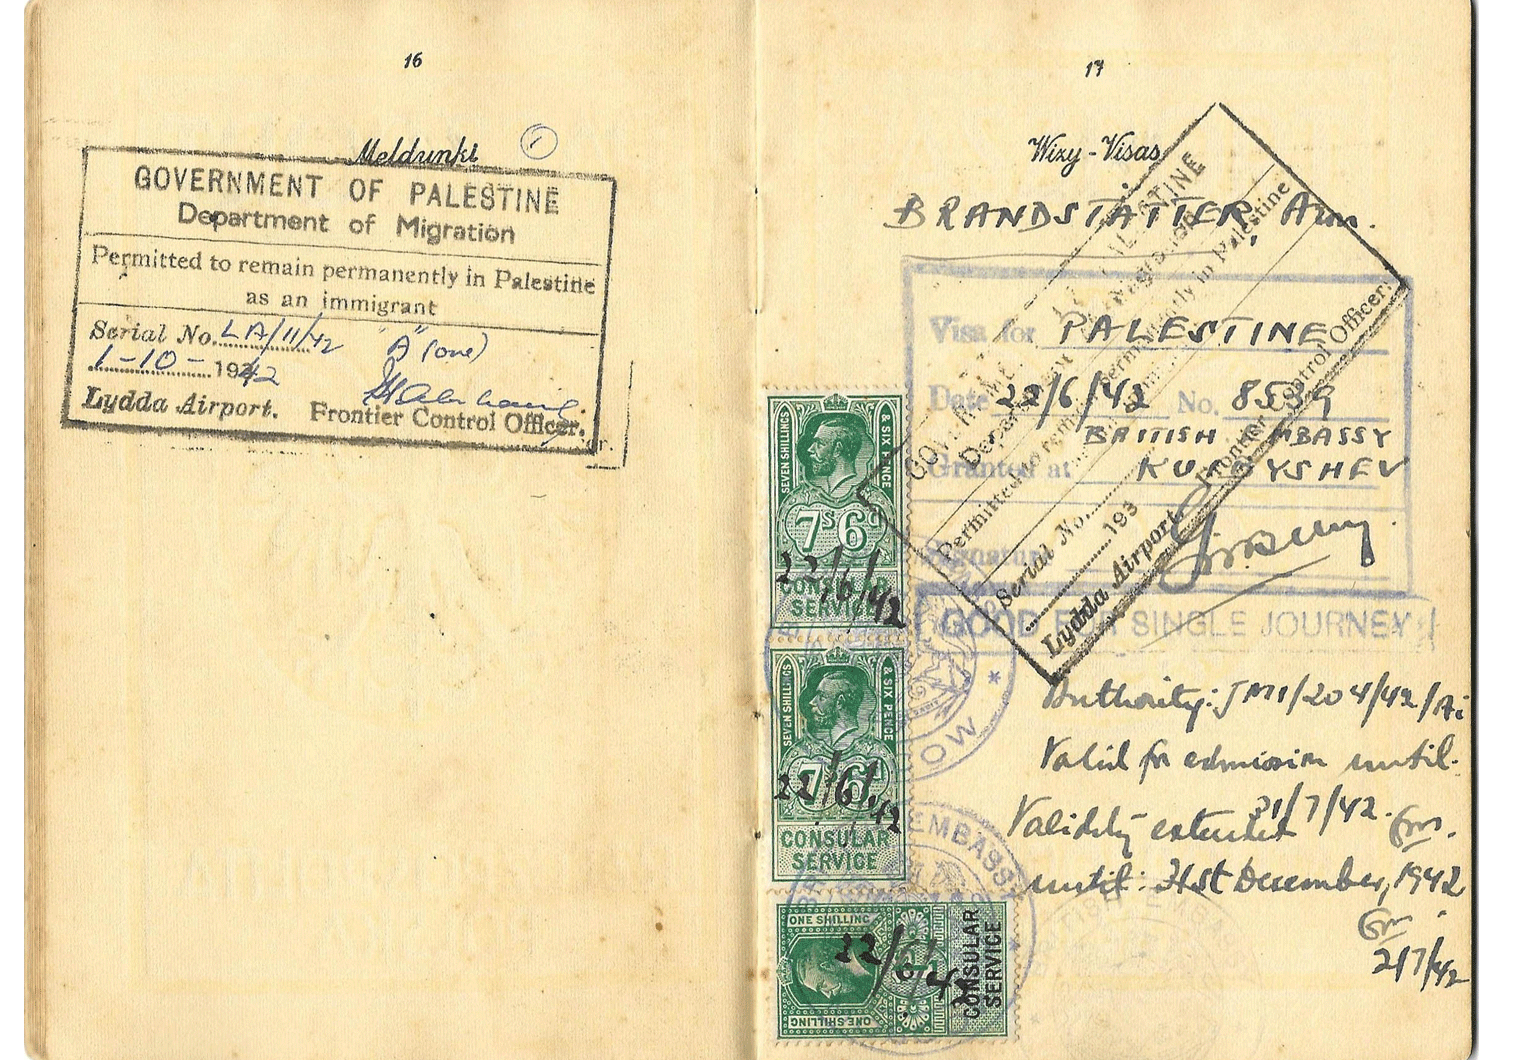 16
Meldunki
1
GOVERNMENT OF PALESTINE
Department of Migration
Permitted to remain permanently in Palestine
as an immigrant
Serial No. LA/11/42 "A" (one)
1-10- 1942
Lydda Airport. Frontier Control Officer.
17
Wizy-Visas
BRANDSTÄTTER,
Visa for PALESTINE
Date 22/6/42 No. 8539
BRITISH EMBASSY
Granted at KUIBYSHEV
Signature
GOOD FOR SINGLE JOURNEY
Authority: JM1/204/42/
Valid for admission until
31/7/42.
Validity extended
until: 31st December, 1942
2/7/42
Permitted to remain permanently in Palestine
Serial No.
193
Lydda Airport. Frontier Control Officer.
SEVEN SHILLINGS & SIX PENCE
7s 6d
22/6/42
CONSULAR
SERVICE
SEVEN SHILLINGS & SIX PENCE
7s 6d
22/6/42
CONSULAR
SERVICE
ONE SHILLING
22/6/42
ONE SHILLING
CONSULAR
SERVICE
EMBASSY
BRITISH EMBASSY